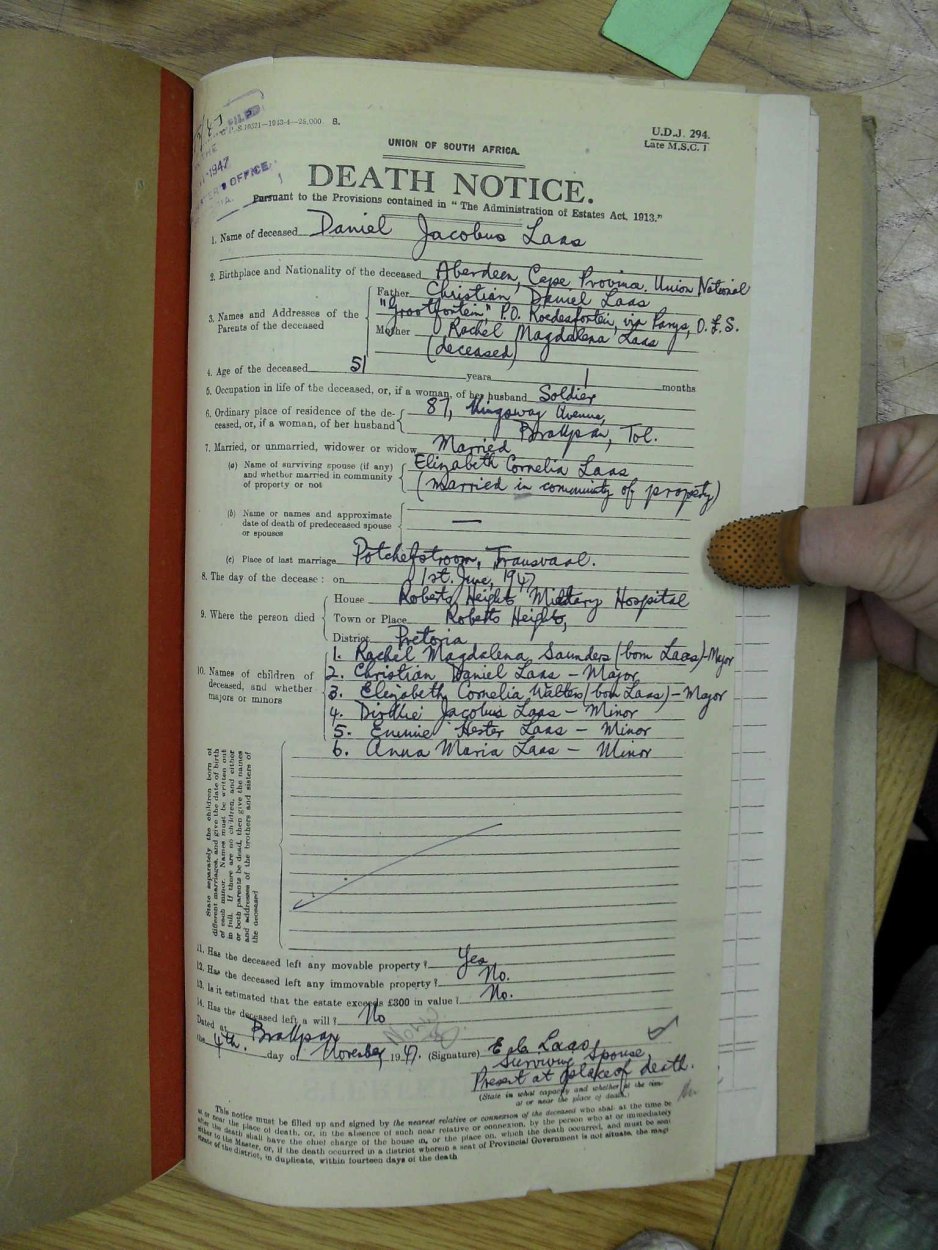 FILED
S.10321—1943-4—25,000. S.
U.D.J. 294.
Late M.S.C. 1
1947
OFFICE
UNION OF SOUTH AFRICA.
DEATH NOTICE.
Pursuant to the Provisions contained in "The Administration of Estates Act, 1913."
1. Name of deceased Daniel Jacobus Laas
2. Birthplace and Nationality of the deceased Aberdeen, Cape Province. Union National
3. Names and Addresses of the Parents of the deceased
Father Christian Daniel Laas
"Grootfontein" P.O. Koedesfontein, via Parys, O.F.S.
Mother Rachel Magdalena Laas
(deceased)
4. Age of the deceased 51 years 1 months
5. Occupation in life of the deceased, or, if a woman, of her husband Soldier
6. Ordinary place of residence of the de- 87, Kingsway Avenue,
ceased, or, if a woman, of her husband Brakpan, Tvl.
7. Married, or unmarried, widower or widow Married
(a) Name of surviving spouse (if any) Elizabeth Cornelia Laas
and whether married in community (Married in community of property)
of property or not
(b) Name or names and approximate
date of death of predeceased spouse —
or spouses
(c) Place of last marriage Potchefstroom, Transvaal.
8. The day of the decease: on 1st. June, 1947
9. Where the person died
House Roberts Heights Military Hospital
Town or Place Roberts Heights,
District Pretoria
10. Names of children of
deceased, and whether
majors or minors
1. Rachel Magdalena Saunders (born Laas) - Major
2. Christian Daniel Laas - Major
3. Elizabeth Cornelia Walters (born Laas) - Major
4. Jacobus Laas - Minor
5. Hester Laas - Minor
6. Anna Maria Laas - Minor
State separately the children born of
different marriages, and give the date of birth
of each minor. Names must be written out
in full. If there are no children, and either
or both parents be dead, then give the names
and addresses of the brothers and sisters of
the deceased
11. Has the deceased left any movable property? Yes
12. Has the deceased left any immovable property? No.
13. Is it estimated that the estate exceeds £300 in value? No.
14. Has the deceased left a will? No
Dated at Brakpan
the 4th. day of November 1947. (Signature) Laas
Surviving Spouse,
Present at place of death.
(State in what capacity and whether at the time
at or near the place of death.)
This notice must be filled up and signed by the nearest relative or connexion of the deceased who shall at the time be
at or near the place of death, or, in the absence of such near relative or connexion, by the person who at or immediately
after the death shall have the chief charge of the house in, or the place on, which the death occurred, and must be sent
either to the Master, or, if the death occurred in a district wherein a seat of Provincial Government is not situate, the magi
strate of the district, in duplicate, within fourteen days of the death